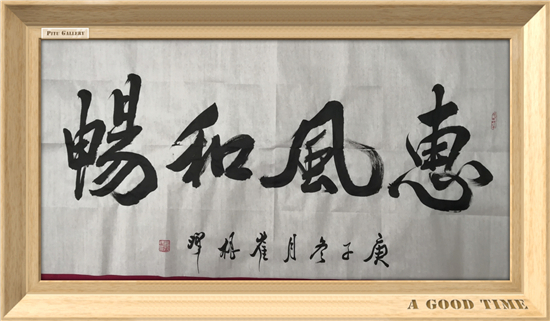 Pitu Gallery
惠風和暢
庚子冬月崔
A GOOD TIME